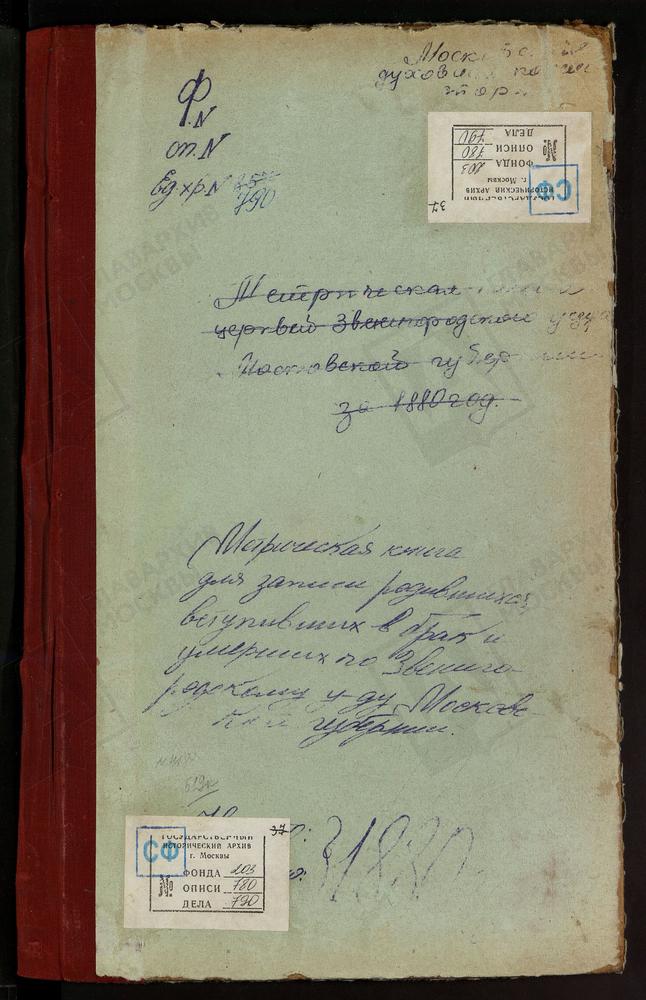 Московской
духовной
Ф.N
оп.N
Ед.хр.N
790
ДЕЛА 790
ОПИСИ 780
ФОНДА 203
№
г. Москвы
ИСТОРИЧЕСКИЙ АРХИВ
ГОСУДАРСТВЕННЫЙ
СФ
37
Метрическая книга
церквей Звенигородского уезда
Московской губернии
за 1880 год.
Метрическая книга
для записи родившихся,
вступивших в брак и
умерших по Звениго-
родскому у-ду Москов-
ской губернии.
37
СФ
ГОСУДАРСТВЕННЫЙ
ИСТОРИЧЕСКИЙ АРХИВ
г. Москвы
№
ФОНДА 203
ОПИСИ 780
ДЕЛА 790
ГЛАВАРХИВ
МОСКВЫ